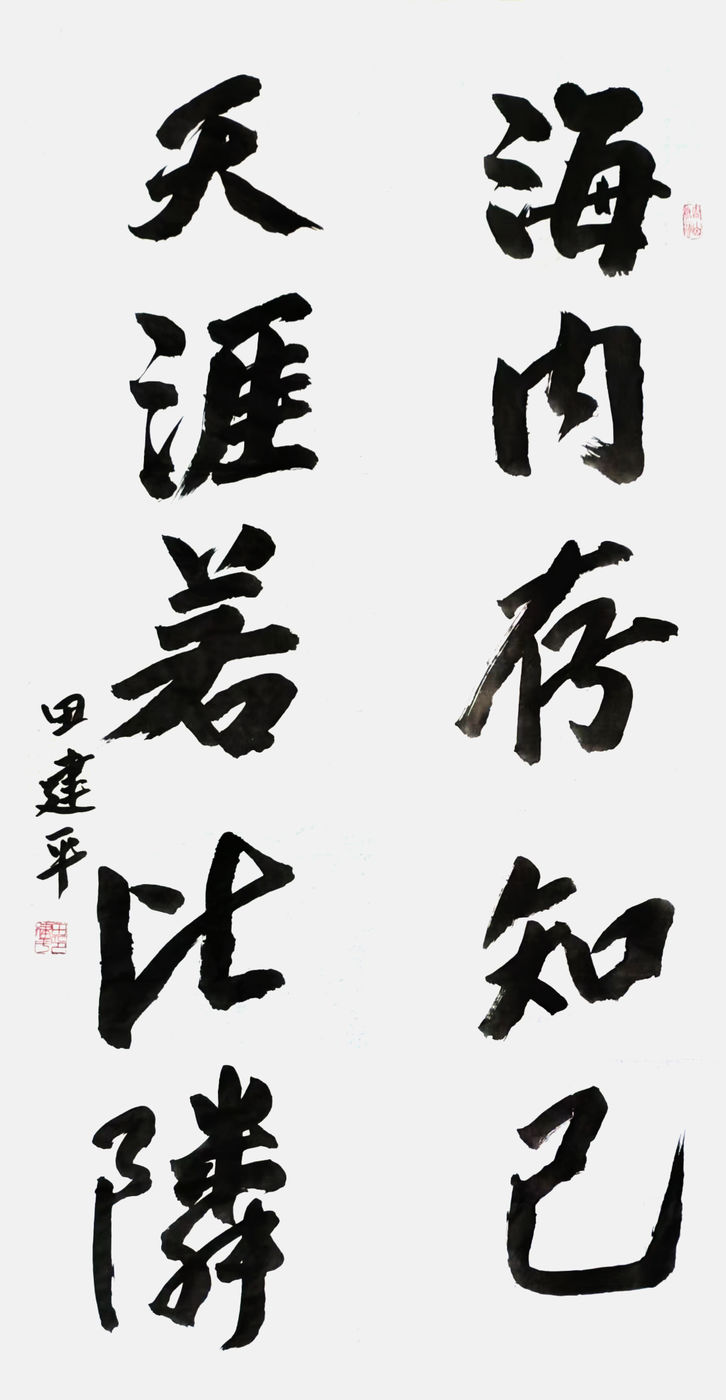 海内存知己
天涯若比隣
田建平